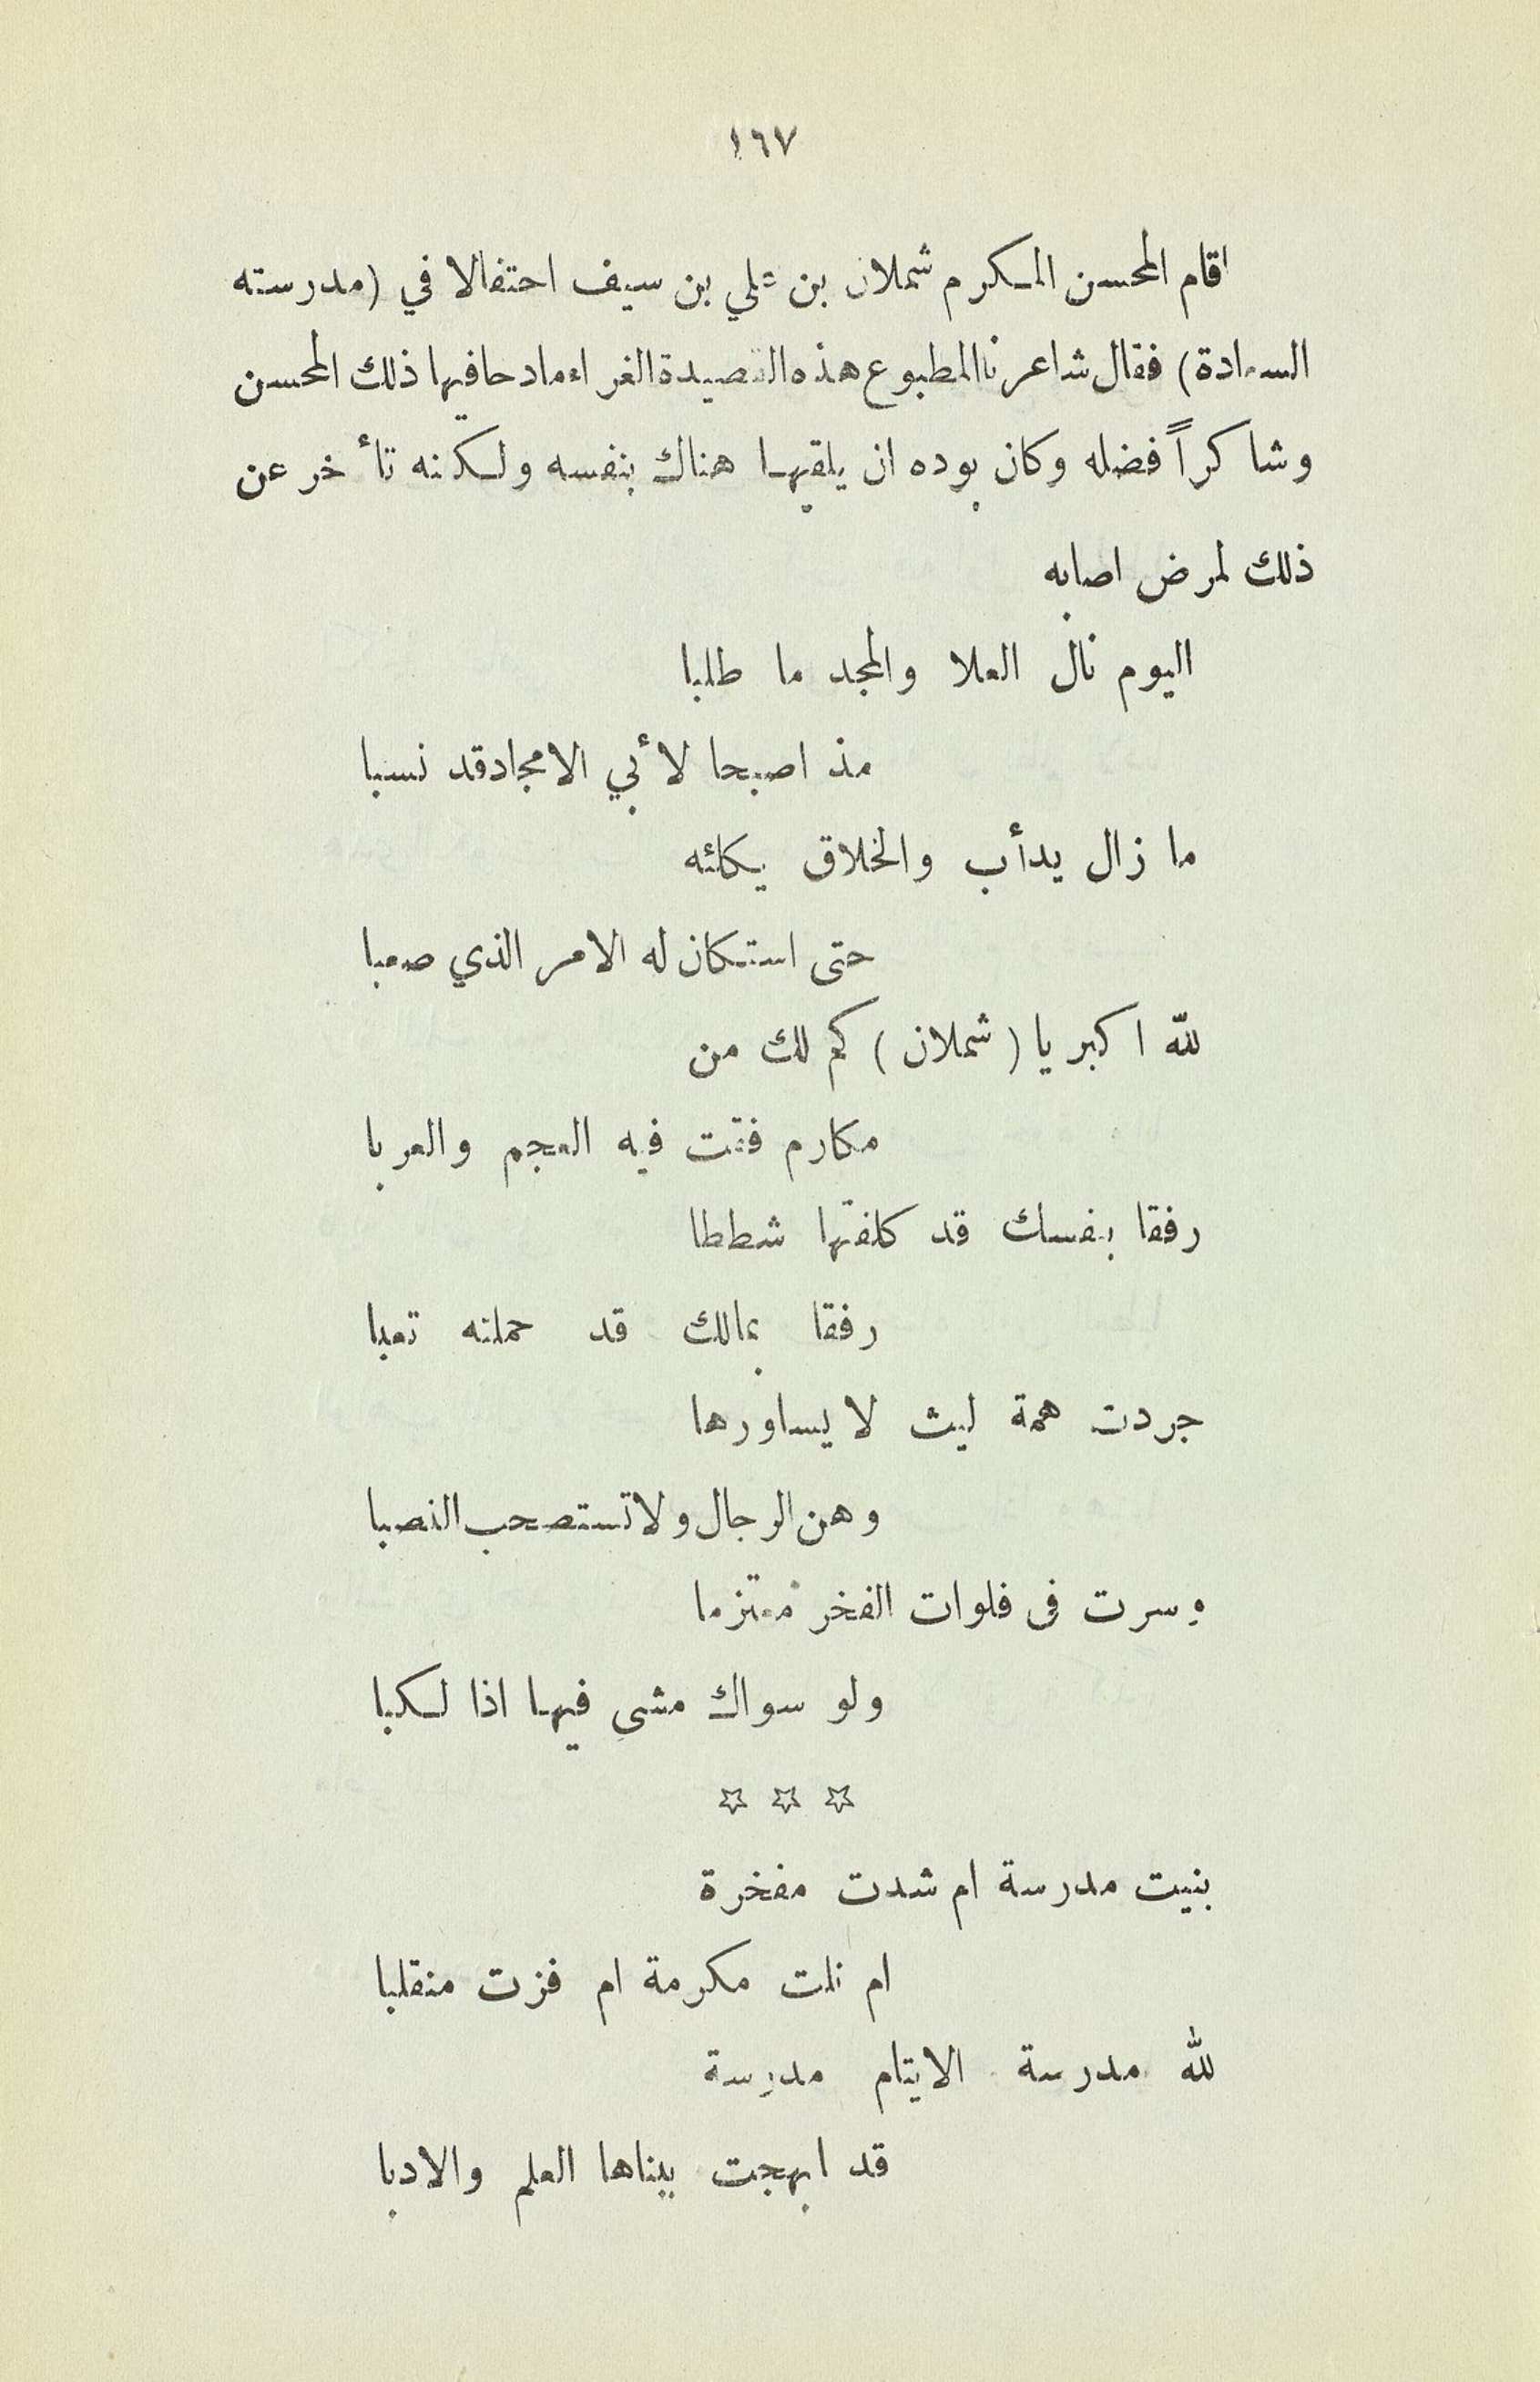 ١٦٧
اقام المحسن المكرم شملان بن علي بن سيف احتفالا في (مدرسته
السعادة) فقال شاعرنا المطبوع هذه القصيدة الغراء مادحا فيها ذلك المحسن
وشاكراً فضله وكان بوده ان يلقيها هناك بنفسه ولكنه تأخر عن
ذلك لمرض اصابه
اليوم نال العلا والمجد ما طلبا
مذ اصبحا لأبي الامجاد قد نسبا
ما زال يدأب والخلاق يكلئه
حتى استكان له الامر الذي صعبا
لله اكبر يا (شملان) كم لك من
مكارم فقت فيه العجم والعربا
رفقا بنفسك قد كلفتها شططا
رفقا بمالك قد حملته تعبا
جردت همة ليث لا يساورها
وهن الرجال ولا تستصحب النصبا
وسرت في فلوات الفخر معتزما
ولو سواك مشى فيها اذا لكبا
☆ ☆ ☆
بنيت مدرسة ام شدت مفخرة
ام نلت مكرمة ام فزت منقلبا
لله مدرسة الايتام مدرسة
قد ابهجت ببناها العلم والادبا